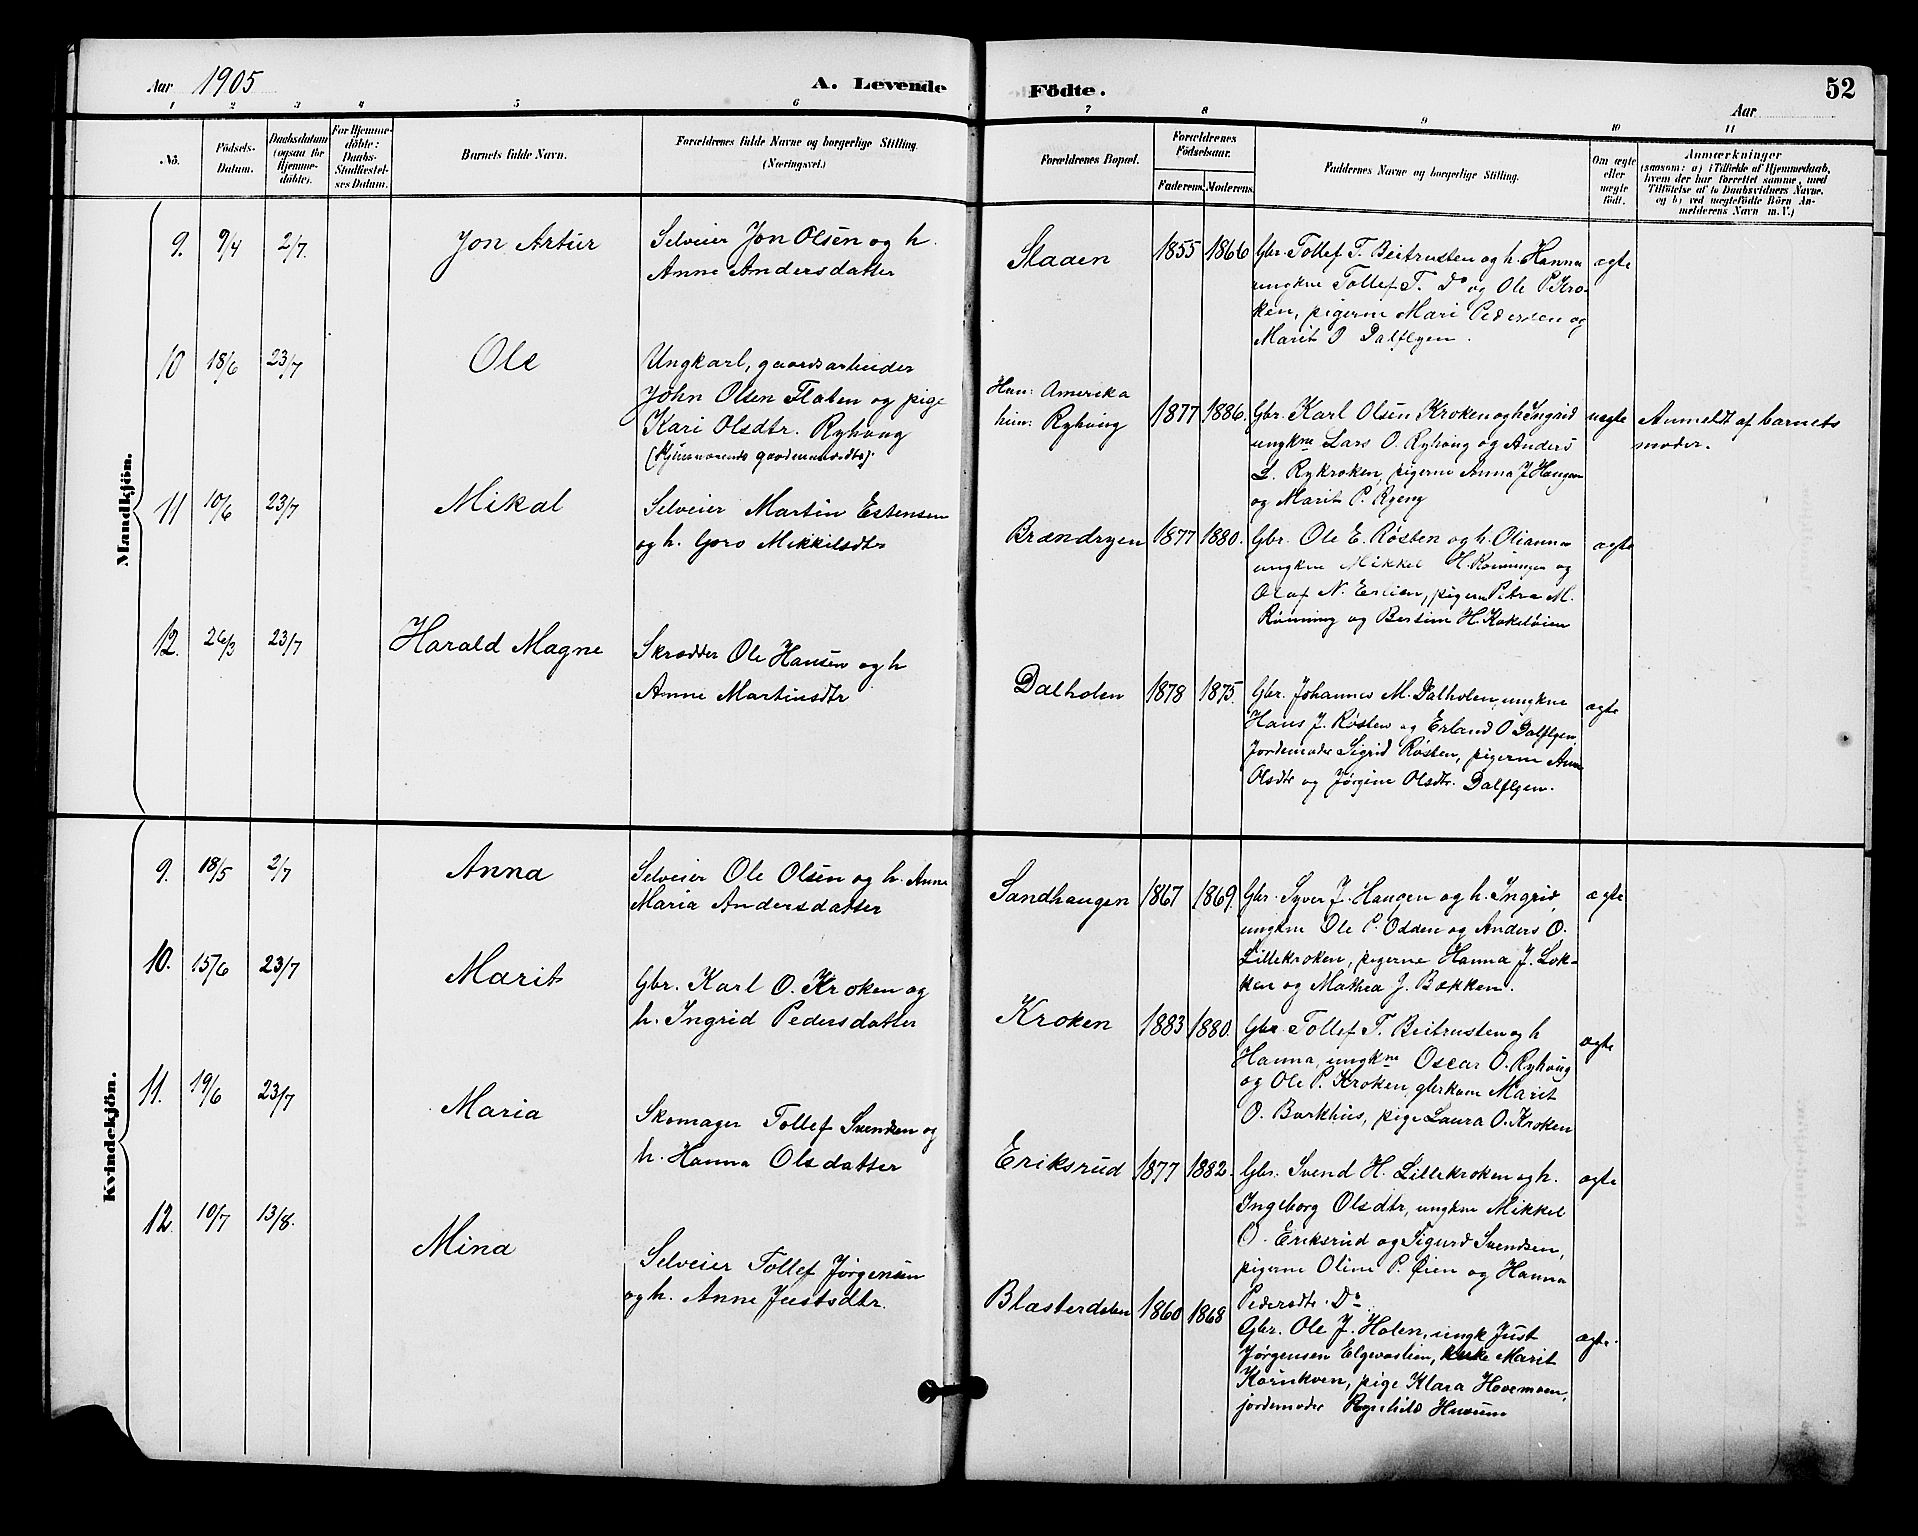 Aar 1905
A. Levende
Födte.
52
Aar
1 2 3 4 5 6
7 8 9 10 11
Nö.
Födsels-
Datum.
Daabsdatum
(ogsaa for
Hjemme-
döbte).
For Hjemme-
döbte:
Daabs-
Stadfæstel-
ses Datum.
Barnets fulde Navn.
Forældrenes fulde Navne og borgerlige Stilling.
(Næringsvei.)
Forældrenes Bopæl.
Forældrenes
Födselsaar.
Faderens.
Moderens.
Faddernes Navne og borgerlige Stilling.
Om ægte
eller
uægte
födt.
Anmærkninger
(saasom: a) i Tilfælde af Hjemmedaab,
hvem der har forrettet samme, med
Tilföielse af to Daabsvidners Navne,
og b) ved uægtefödte Börn An-
melderens Navn m. V.)
Mandkjön.
9. 9/4 2/7. Jon Artur
Selveier Jon Olsen og h.
Anne Andersdatter
Slaaen 1855 1866
Gbr. Tollef T. Beitrusten og h. Hanna
ungkne Tollef T. Do og Ole P. Kro-
ken, pigerne Mari Pedersen og
Marit O Dalflyen.
ægte
10 18/6 23/7 Ole
Ungkarl, gaardsarbeider
John Olsen Flaten og pige
Kari Olsdtr. Ryhoug
Han: Amerika
hun: Ryhoug
1877 1886.
Gbr. Karl Olsen Kroken og h. Ingrid
ungkne Lars O. Ryhoug og Anders
L. Rykroken, pigerne Anna J. Haugen
og Marit P. Ryeng
uægte
Anmeldt af barnets
moder.
11 10/6 23/7 Mikal
Selveier Martin Estensen
og h. Goro Mikkelsdtr
Brændryen 1877 1880.
Gbr. Ole E. Røsten og h. Olianna
ungkne Mikkel H. Rønningen og
Olaf N. Eslien, pigerne Petra M.
Rønning og Bersine H. Kakeløien
ægte
12. 26/3 23/7 Harald Magne
Skrædder Ole Hansen og h
Anne Martinsdtr
Dalholen 1878 1875.
Gbr. Johannes M. Dalholen, ungkne
Hans J. Røsten og Erland O Dalflyen,
Jordemoder Sigrid Røsten, pigerne Anne
Olsdtr og Jørgine Olsdtr. Dalflyen.
ægte
Kvindekjön.
9. 18/5 2/7 Anna
Selveier Ole Olsen og h. Anne
Maria Andersdatter
Sandhaugen 1867 1869.
Gbr. Syver J. Haugen og h. Ingrid,
ungkne Ole P. Odden og Anders O.
Lillekroken, pigerne Hanna J. Løk-
ken og Mathea J. Bækken.
ægte
10. 15/6 23/7 Marit
Gbr. Karl O. Kroken og
h. Ingrid Pedersdatter
Kroken 1883 1880.
Gbr Tollef T. Beitrusten og h
Hanna, ungkne Oscar O. Ryhoug
og Ole P. Kroken, gbrkone Marit
O. Barkhus, pige Laura O. Kroken
ægte
11. 19/6 23/7 Maria
Skomager Tollef Svendsen og
h. Hanna Olsdatter
Eriksrud 1877 1882.
Gbr. Svend H. Lillekroken og h.
Ingeborg Olsdtr, ungkne Mikkel
O. Eriksrud og Sigurd Svendsen,
pigerne Oline P. Øien og Hanna
Pedersdtr. Do
ægte
12. 10/7 13/8. Mina
Selveier Tollef Jørgensen
og h. Anne Justsdtr.
Blæsterdalen 1860 1868
Gbr. Ole J. Holen, ungk Just
Jørgensen Elgevaslien, Marit
Kornkven, pige Klara Hovemoen,
jordemoder Ragnhild Husum
ægte.